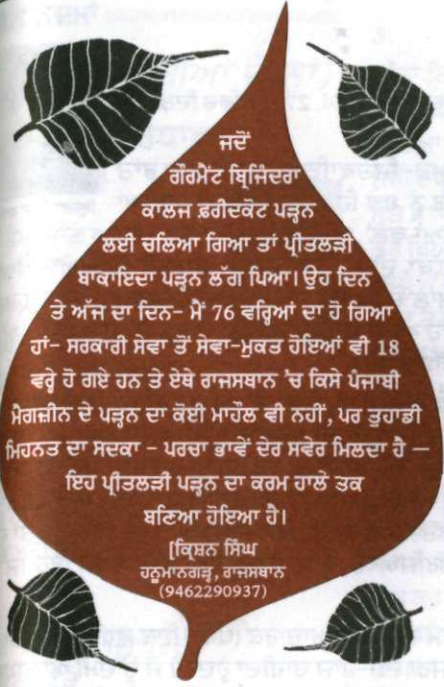 ਜਦੋਂ
ਗੌਰਮੈਂਟ ਬ੍ਰਿਜਿੰਦਰਾ
ਕਾਲਜ ਫ਼ਰੀਦਕੋਟ ਪੜ੍ਹਨ
ਲਈ ਚਲਿਆ ਗਿਆ ਤਾਂ ਪ੍ਰੀਤਲੜੀ
ਬਾਕਾਇਦਾ ਪੜ੍ਹਨ ਲੱਗ ਪਿਆ। ਉਹ ਦਿਨ
ਤੇ ਅੱਜ ਦਾ ਦਿਨ- ਮੈਂ 76 ਵਰ੍ਹਿਆਂ ਦਾ ਹੋ ਗਿਆ
ਹਾਂ- ਸਰਕਾਰੀ ਸੇਵਾ ਤੋਂ ਸੇਵਾ-ਮੁਕਤ ਹੋਇਆਂ ਵੀ 18
ਵਰ੍ਹੇ ਹੋ ਗਏ ਹਨ ਤੇ ਏਥੇ ਰਾਜਸਥਾਨ 'ਚ ਕਿਸੇ ਪੰਜਾਬੀ
ਮੈਗਜ਼ੀਨ ਦੇ ਪੜ੍ਹਨ ਦਾ ਕੋਈ ਮਾਹੌਲ ਵੀ ਨਹੀਂ, ਪਰ ਤੁਹਾਡੀ
ਮਿਹਨਤ ਦਾ ਸਦਕਾ - ਪਰਚਾ ਭਾਵੇਂ ਦੇਰ ਸਵੇਰ ਮਿਲਦਾ ਹੈ —
ਇਹ ਪ੍ਰੀਤਲੜੀ ਪੜ੍ਹਨ ਦਾ ਕਰਮ ਹਾਲੇ ਤਕ
ਬਣਿਆ ਹੋਇਆ ਹੈ।
[ਕ੍ਰਿਸ਼ਨ ਸਿੰਘ
ਹਨੂਮਾਨਗੜ੍ਹ, ਰਾਜਸਥਾਨ
(9462290937)